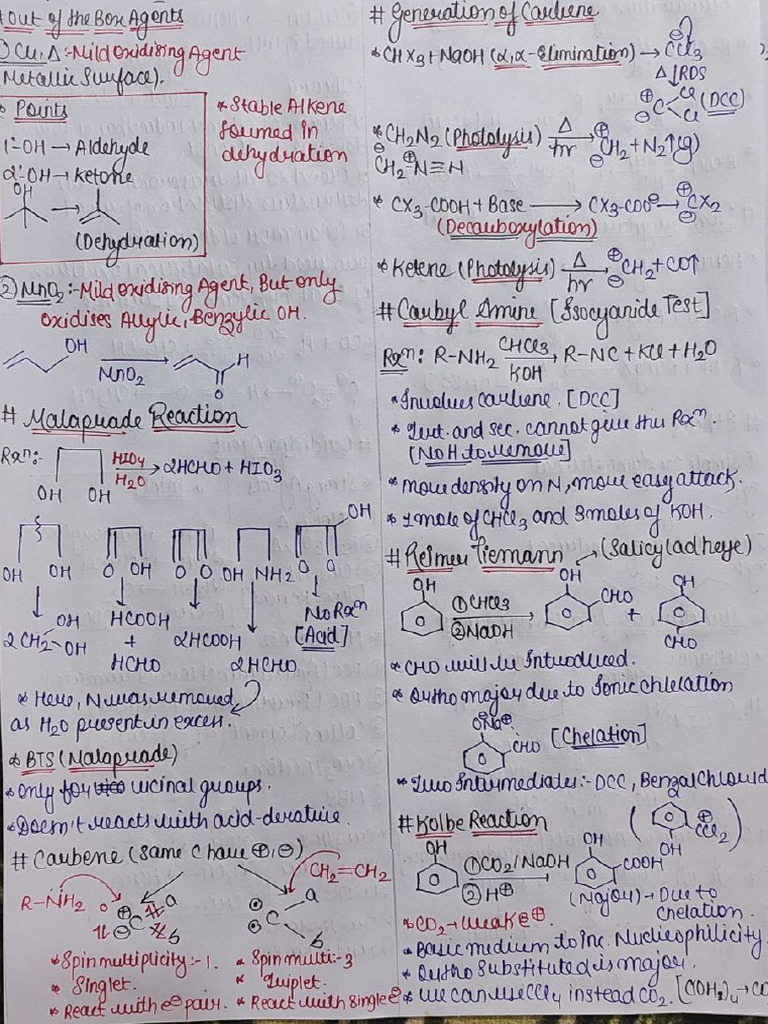 # Out of the Box Agents
① Cu, Δ :- Mild Oxidising Agent
(Metallic Surface).
* Points
1°-OH → Aldehyde
2°-OH → Ketone
OH
(Dehydration)
* Stable Alkene
formed in
dehydration
② MnO2 :- Mild oxidising Agent, But only
oxidises Allylic, Benzylic OH.
OH
MnO2
H
O
# Malaprade Reaction
Rxn:-
OH OH
HIO4
H2O
→ 2HCHO + HIO3
OH
OH OH O OH O O OH NH2 O O
2CH2
OH
OH
HCOOH
+
HCHO
2HCOOH
2HCHO
No Rxn
[Acid]
* Here, N was removed
as H2O present in excess.
* BTS (Malaprade)
* Only for vicinal groups.
* Doesn't reacts with acid-derative.
# Carbene (Same C have ⊕, ⊖)
CH2=CH2
R-NH2
⊕
⊖
C
a
b
C
a
b
* Spin multiplicity:- 1.
* Singlet.
* React with e⊖ pair.
* Spin multi:- 3
* Triplet.
* React with single e⊖
# Generation of Carbene
* CHX3 + NaOH (α,α-Elimination) → CCl3
⊖
Δ ↓ RDS
⊕
⊖
C
Cl
Cl
(DCC)
* CH2N2 (Photolysis) Δ/hr → CH2 + N2↑(g)
CH2-N≡N
* CX3-COOH + Base → CX3-COO⊖ → CX2
(Decarboxylation)
* Ketene (Photolysis) Δ/hr → CH2 + CO↑
# Carbyl Amine [Isocyanide Test]
Rxn: R-NH2 CHCl3/KOH → R-NC + KCl + H2O
* Involves carbene. [DCC]
* Tert. and sec. cannot give this Rxn
[No H to remove]
* more density on N, more easy attack.
* 1 mole of CHCl3 and 3 moles of KOH.
# Reimer Tiemann → (Salicyladheye)
OH
① CHCl3
② NaOH
OH
CHO
+
OH
CHO
* CHO will be Introduced.
* Ortho major due to Ionic chlelation
O⊖Na⊕
CHO [Chelation]
* Two Intermediates:- DCC, Benzal Chlorid
# Kolbe Reaction
OH
⊕
CCl2
OH
① CO2/NaOH
② H⊕
OH
COOH
(Major) → Due to
chelation.
* CO2 → Weak E⊕.
* Basic medium to inc. Nucleophilicity
* Ortho Substituted is major.
* We can use CCl4 instead CO2. [C(OH2)4 → CO